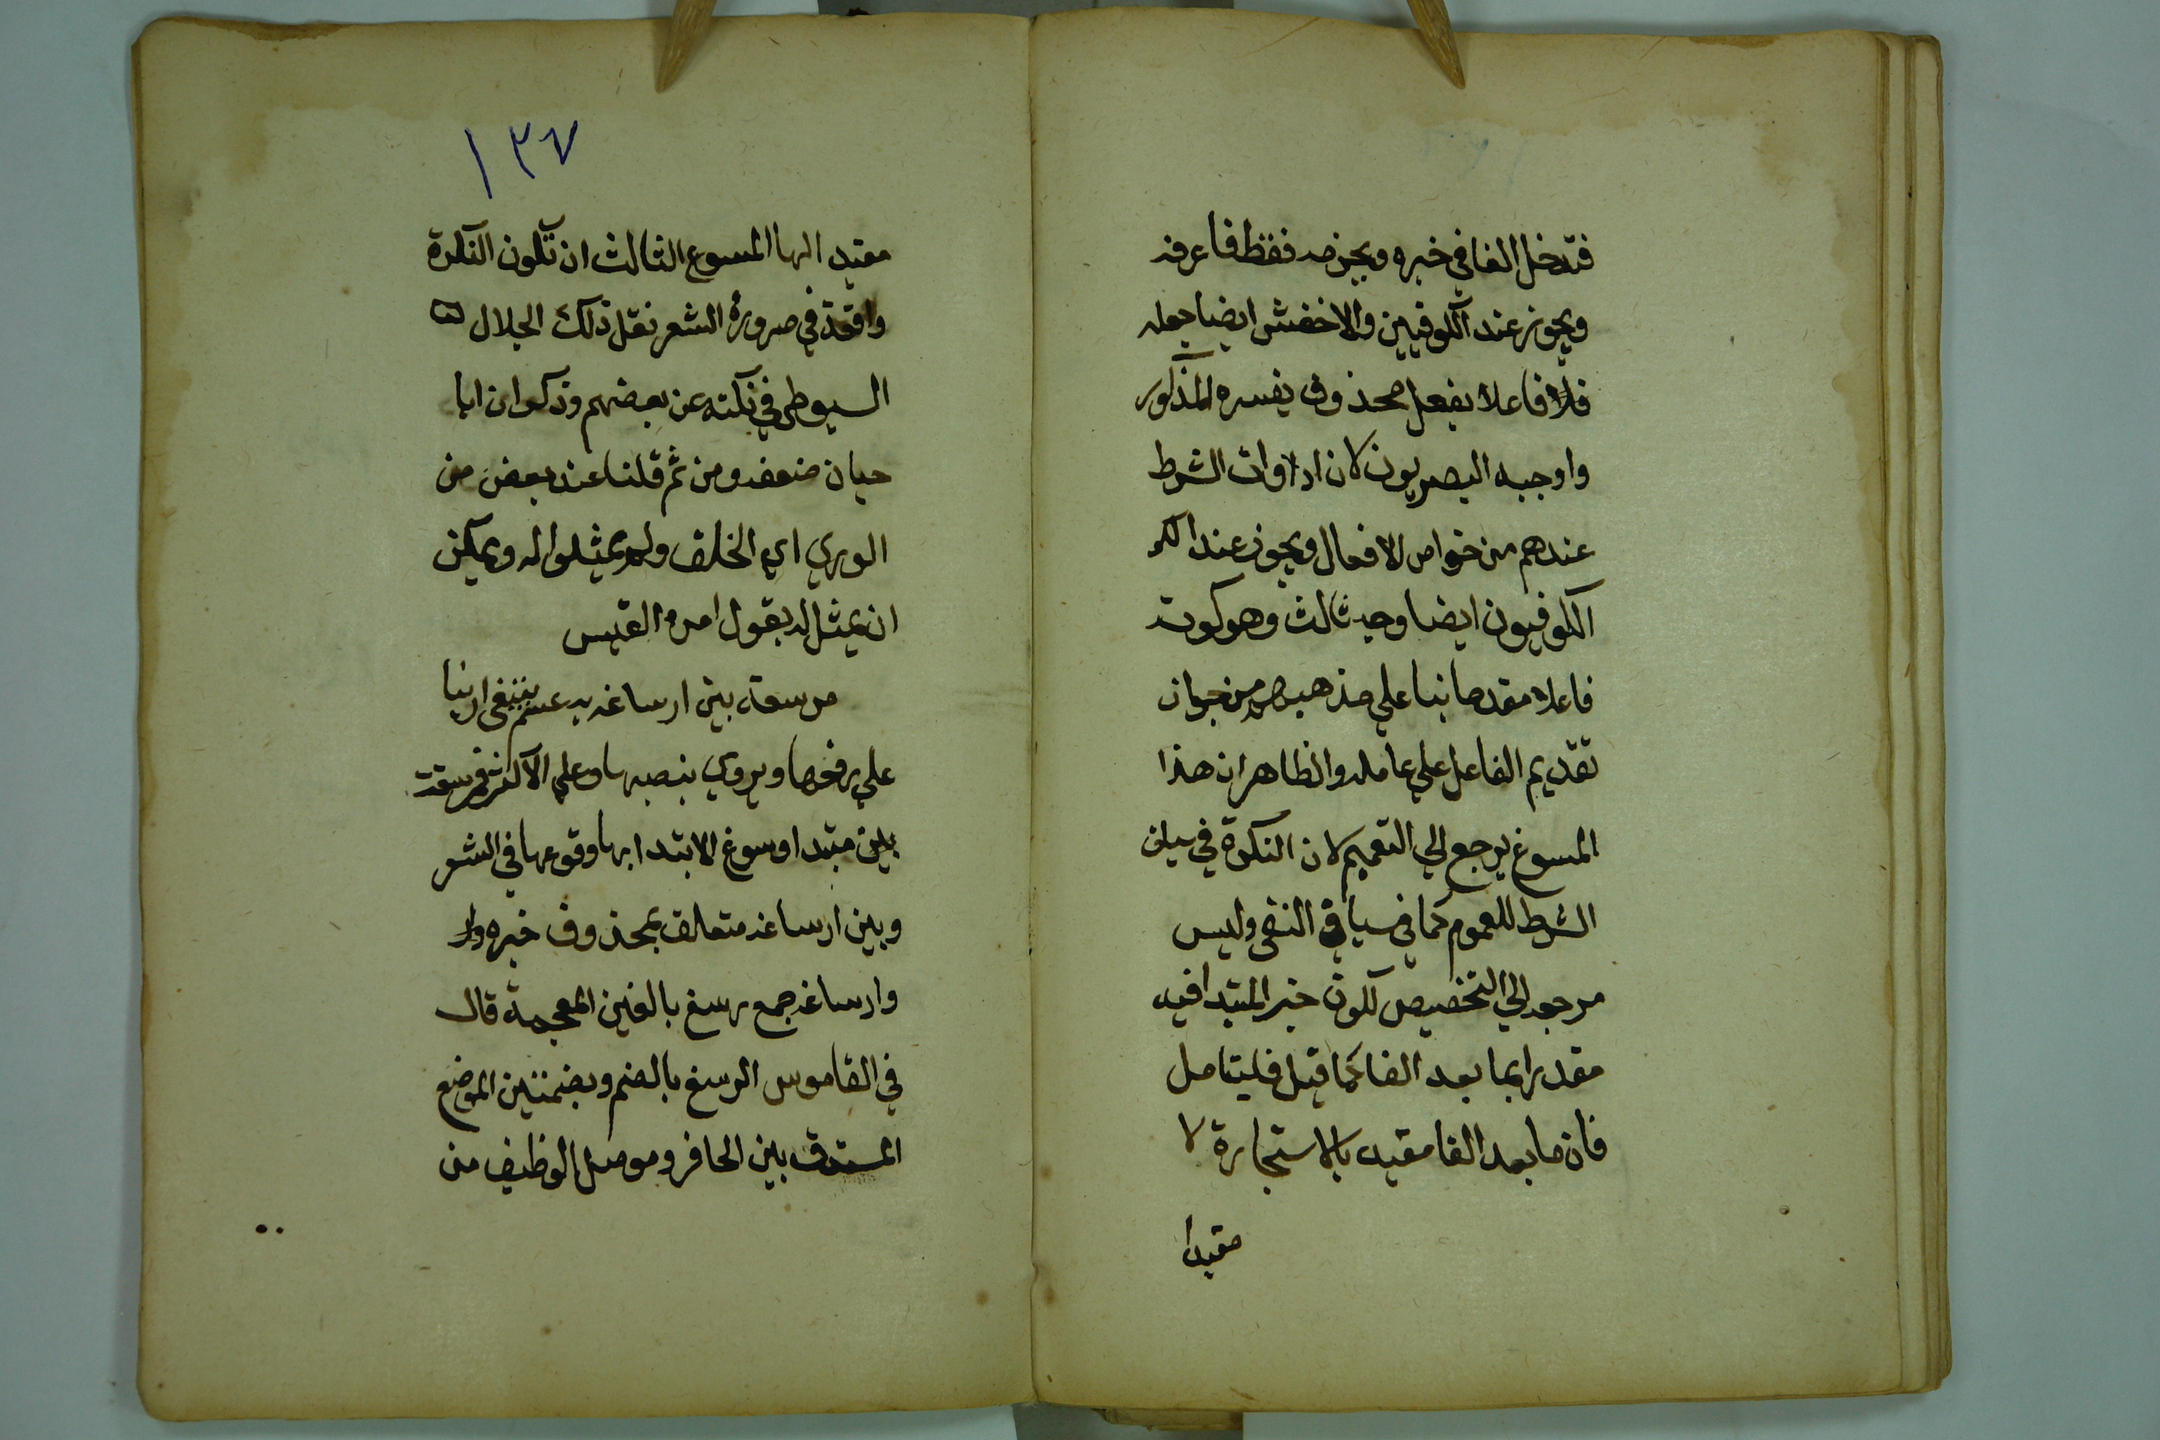 فتدخل الفا في خبره ويجزمه فقط فاعرفه
ويجوز عند الكوفيين والاخفش ايضا جعله
فاعلا بفعل محذوف يفسره المذكور
واوجبه البصريون لان ادوات الشرط
عندهم من خواص الافعال ويجوز عند
الكوفيون ايضا وجه ثالث وهو كونه
فاعلا مقدما بنا علي مذهبهم من جواز
تقديم الفاعل علي عامله والظاهر ان هذا
المسوغ يرجع الي التعميم لان النكرة في سياق
الشرط للعموم كما في سياق النفي وليس
مرجعه الي التخصيص لكون خبر المبتدا فيه
مقدرا بما بعد الفا كما قيل فليتامل
فان ما بعد الفا مقيد بالاستجارة لا
مقيدا
١٣٧
مقيد الها المسوع الثالث ان تكون النكرة
واقعة في ضرورة الشعر نقل ذلك الجلال
السيوطي في نكته عن بعضهم وذكر ان ابا
حيان ضعفه ومن ثم قلنا عند بعض من
الوري اي الخلق ولم يمثلوا له ويمكن
ان يمثل له بقول امرء القيس
مرسعة بين ارساغه به عسم يبتغي ارنبا
علي رفعها ويروي بنصبها وعلي الاول فمرسعة
بين مبتدا وسوغ الابتدا بها وقوعها في الشعر
وبين ارساغه متعلق بمحذوف خبره
وارساغه جمع رسغ بالغين المعجمة قال
في القاموس الرسغ بالضم وبضمتين الموضع
المستدق بين الحافر وموصل الوظيف من